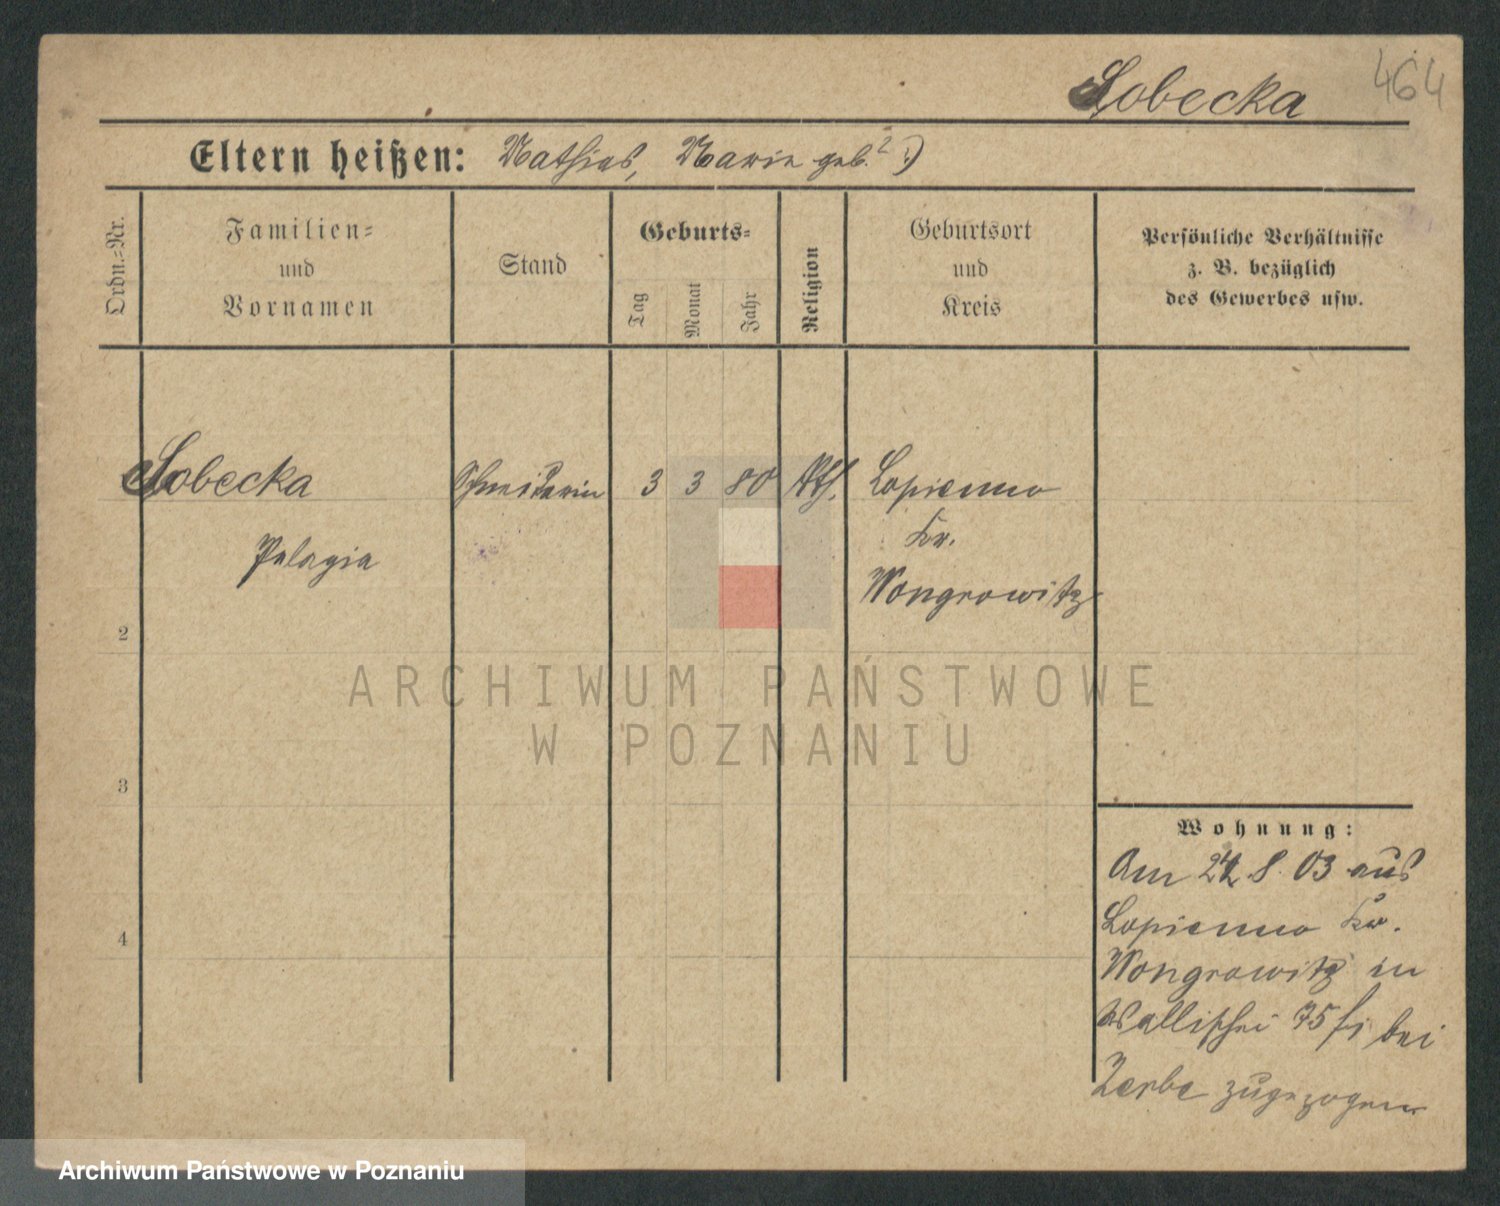 Lobecka 464
Eltern heißen: Mathias, Marie geb. ?)
Ordn.=Nr.
Familien=
und
Vornamen
Stand
Geburts=
Tag
Monat
Jahr
Religion
Geburtsort
und
Kreis
Persönliche Verhältnisse
z. B. bezüglich
des Gewerbes usw.
Lobecka Schneiderin 3 3 80 Kth. Lopienno
Kr.
Pelagia
Wongrowitz
2
3
4
ARCHIWUM PAŃSTWOWE
W POZNANIU
Wohnung:
Am 8. 03 aus
Lopienno Kr.
Wongrowitz in
Wallischei 75 bei
Zerbe zugezogen
Archiwum Państwowe w Poznaniu